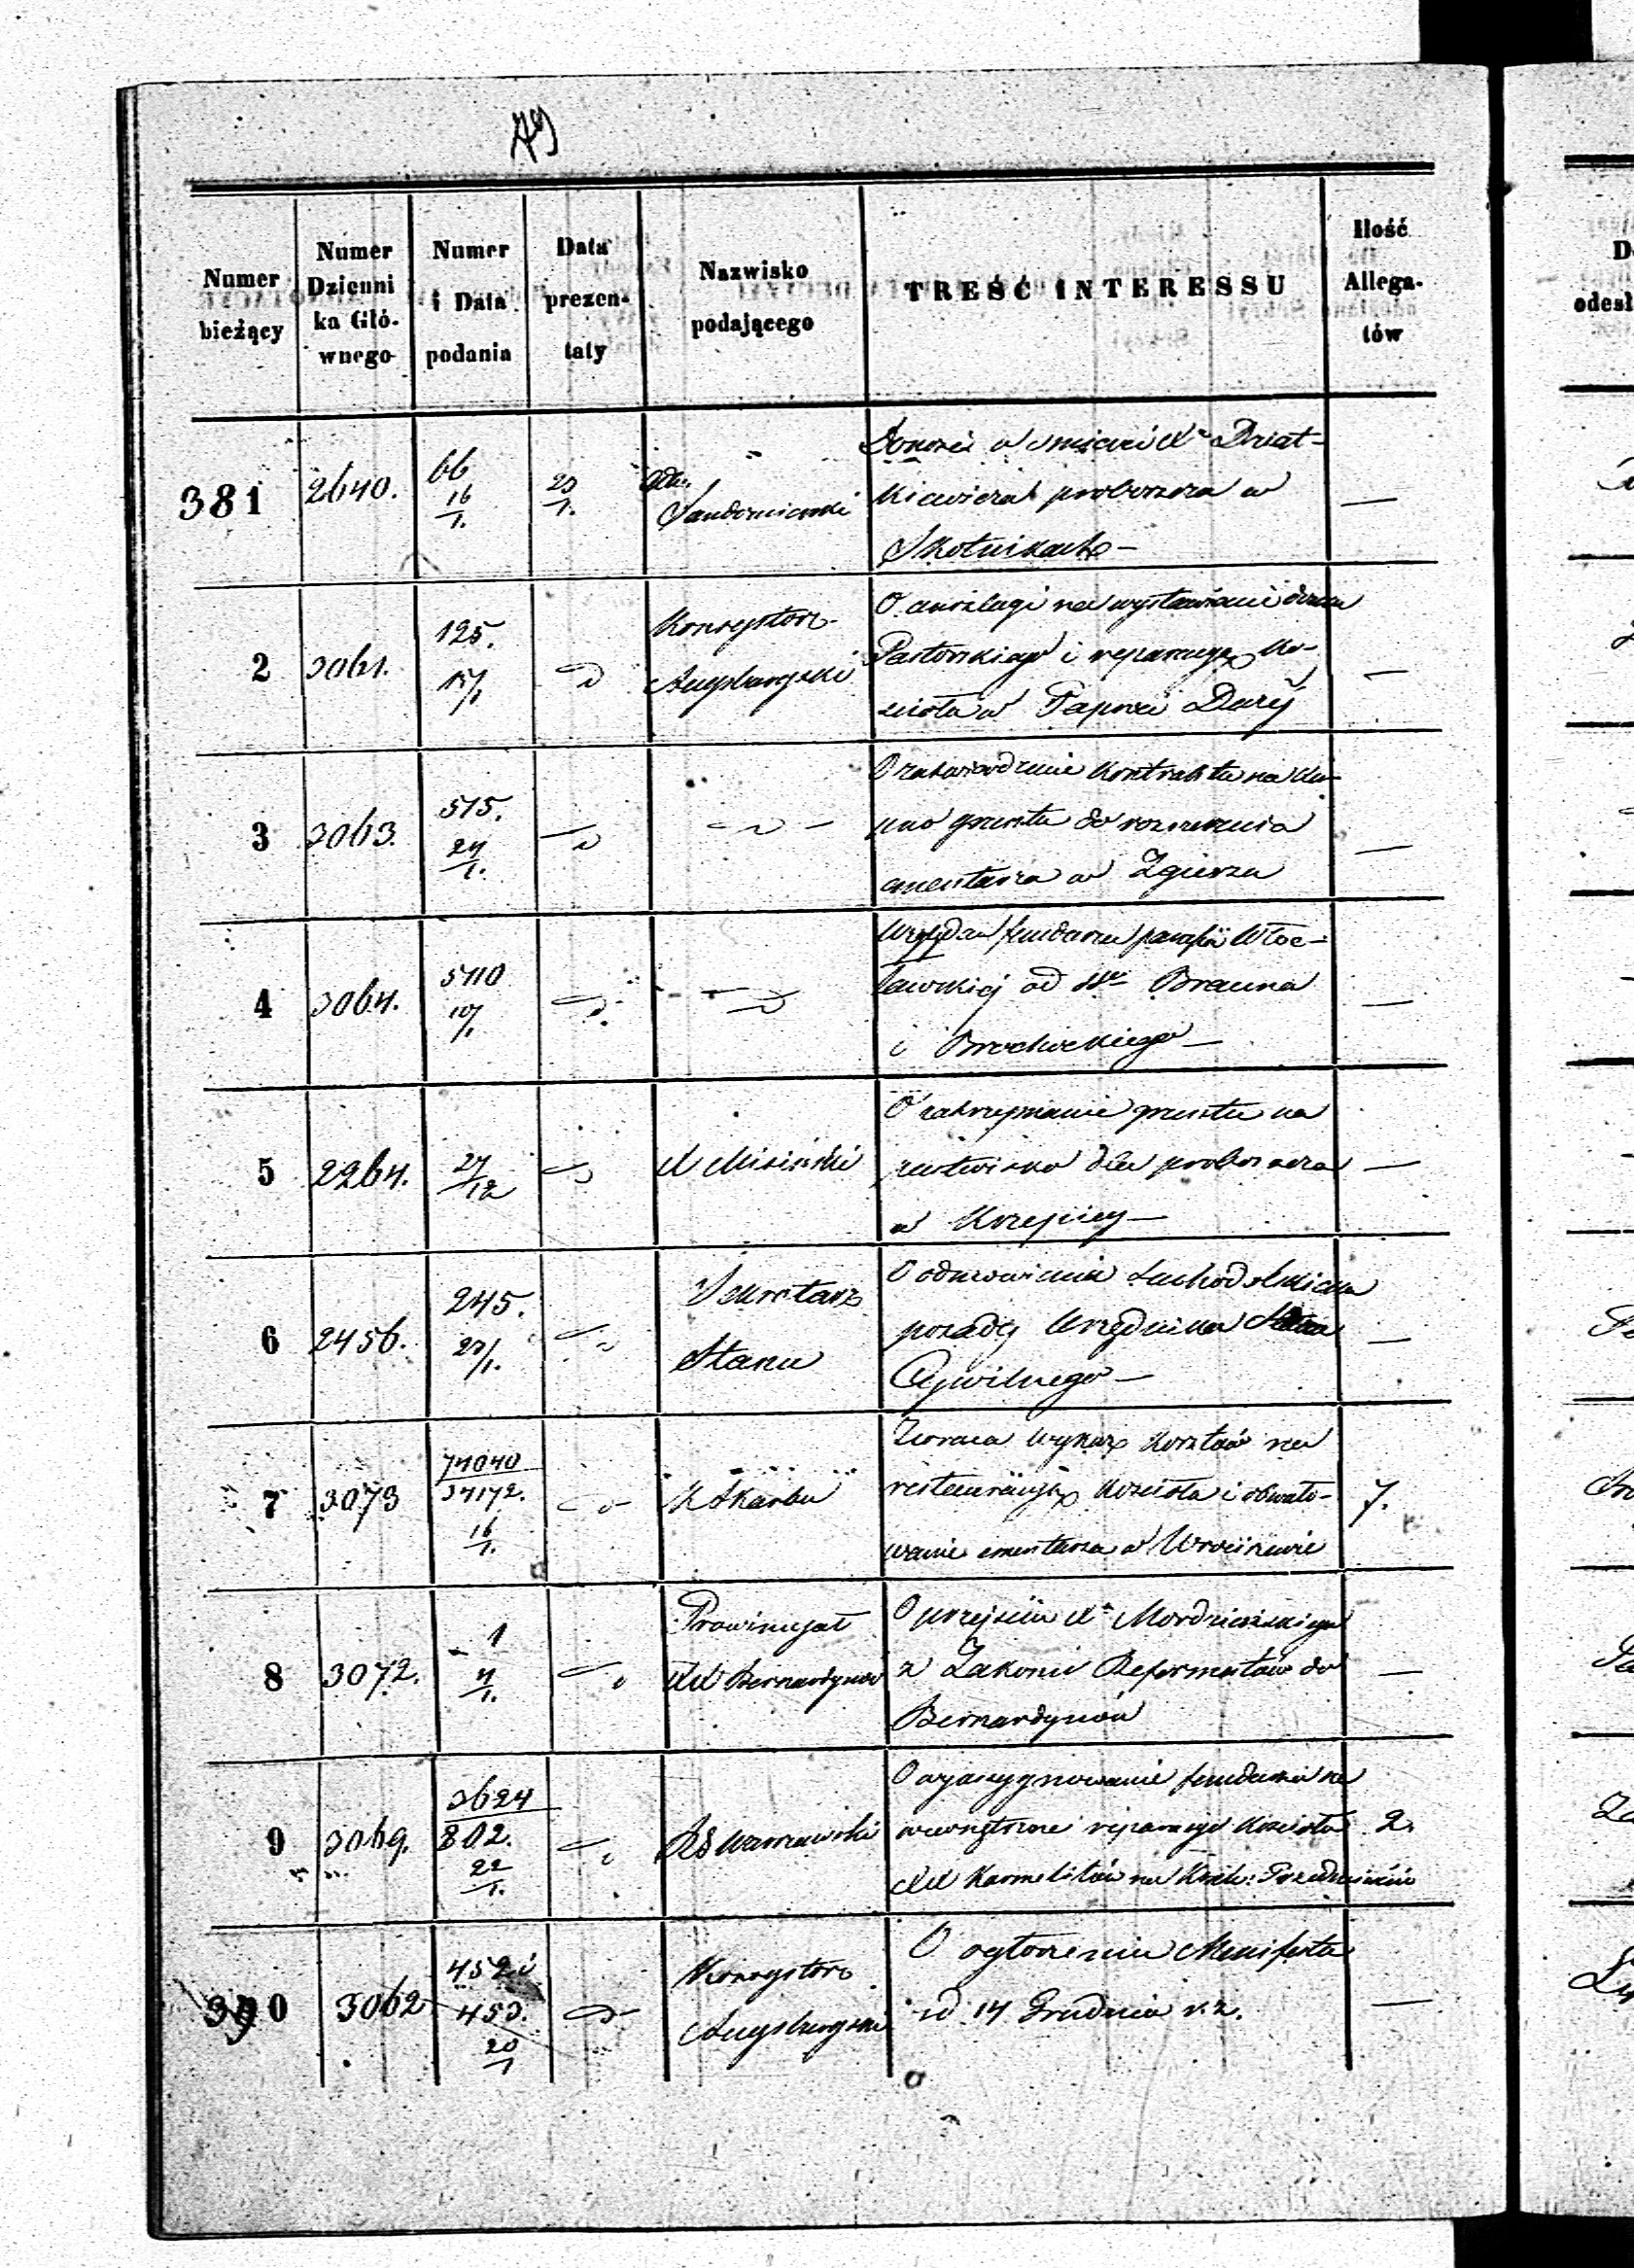 79
Numer bieżący
Numer Dzienni ka Głó- wnego
Numer i Data podania
Data prezen- taty
Nazwisko podającego
TREŚĆ INTERESSU
Ilość Allega- tów
381 2640. 66 16/1. 23/1. Adm. Sandomierski
Donosi o śmierci Xa Dziat-
kiewicza proboszcza w
Skotnikach – —
2 3061. 125. 15/1 Konsystorz Augsburgski
O anszlagi na wystawienie domu
Pastorskiego i reparacyą Ko-
ścioła w Paproci Dużéj —
3 3063. 515. 24/1.
O zatwierdzenie Kontraktu na ku-
pno gruntu do rozszerzenia
cmentarza w Zgierzu —
4 3064. 5110 10/1
Względem funduszu parafii Włoc-
ławskiej od Ww Brauna
i Brochockiego – —
5 2264. 27/12 X Misiński
O zatrzymanie gruntu na
pastwisko dla proboszcza
w Krzepicy – —
6 2456. 245. 23/1. Sekretarz Stanu
O odmówieniu Suchodolskiemu
posady Urzędnika Stanu
Cywilnego – —
7 3073 74040 37172. 16/1. K Skarbu
Zwraca wykaz kosztów na
restauracyą Kościoła i obwało-
wanie cmentarza w Wrociszewie 7.
8 3072. 1 4/1. Prowincyał XX Bernardynów
O przejściu Xa Mordzińskiego
z Zakonu Reformatów do
Bernardynów —
9 3069. 3624 802. 22/1. RG Warszawski
O wyasygnowanie funduszu na
wewnętrzne reparacye Kościoła 2.
XX Karmelitów na Krak: Przedmieściu
390 3062 452 i 453. 20/1 Konsystorz Augsburgski
O ogłoszeniu Manifestu
z d 14 Grudnia r. z. —